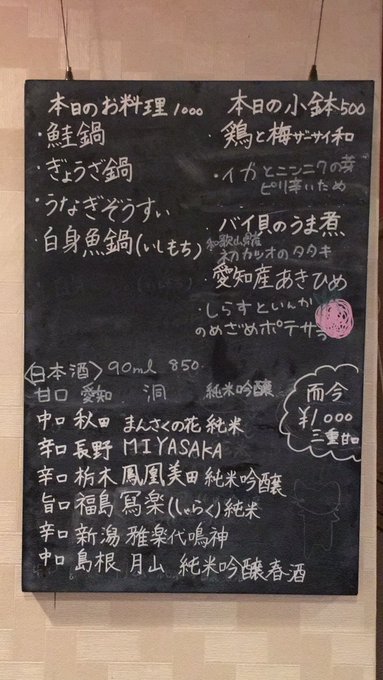 本日のお料理 1000
・鮭鍋
・ぎょうざ鍋
・うなぎぞうすい
・白身魚鍋(いしもち)
本日の小鉢500
・鶏と梅ザーサイ和
・イカとニンニクの芽
ピリ辛いため
・バイ貝のうま煮
和歌山県産
初カツオのタタキ
・愛知産あきひめ
・しらすといんか
のめざめポテサラ
〈日本酒〉90ml 850
甘口 愛知 洞 純米吟醸
中口 秋田 まんさくの花 純米
辛口 長野 MIYASAKA
辛口 栃木 鳳凰美田 純米吟醸
旨口 福島 冩楽(しゃらく)純米
辛口 新潟 雅楽代鳴神
中口 島根 月山 純米吟醸春酒
而今
¥1000
三重甘口